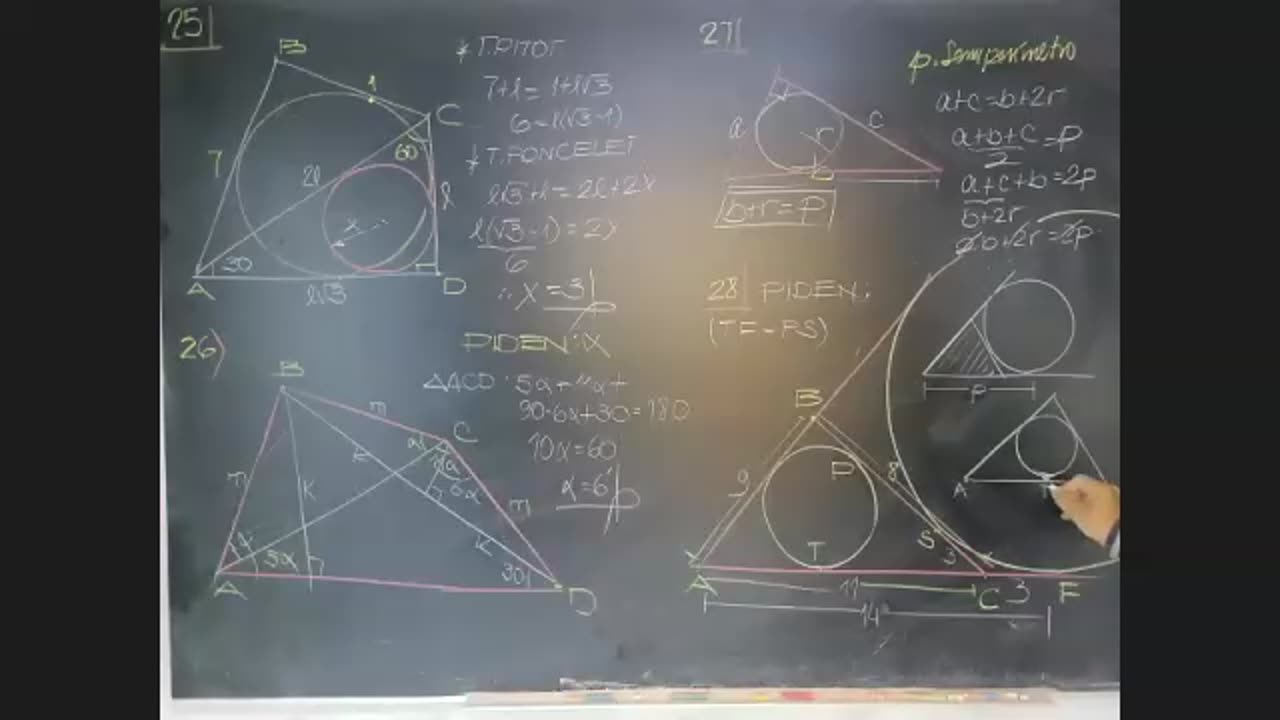 25|
B
1
C
7
2l
60
l
x
30
A
l√3
D
* T. PITOT
7+l = 1+l√3
6 = l(√3-1)
* T. PONCELET
l√3+l = 2l+2x
l(√3-1) = 2x
6
∴ x = 3
26)
PIDEN: X
B
m
C
α
m
K
K
6α
m
α
5α
K
30
A
D
ΔACD: 5α+4α+
90-6α+30=180
10α=60
α=6°
27|
a
r
c
b
b+r=p
p: Semiperímetro
a+c=b+2r
a+b+c = p
2
a+c+b=2p
b+2r
2b+2r=2p
28| PIDEN:
(TF-PS)
B
9
P
8
S
T
3
A
11
C
3
F
14
p
A
T